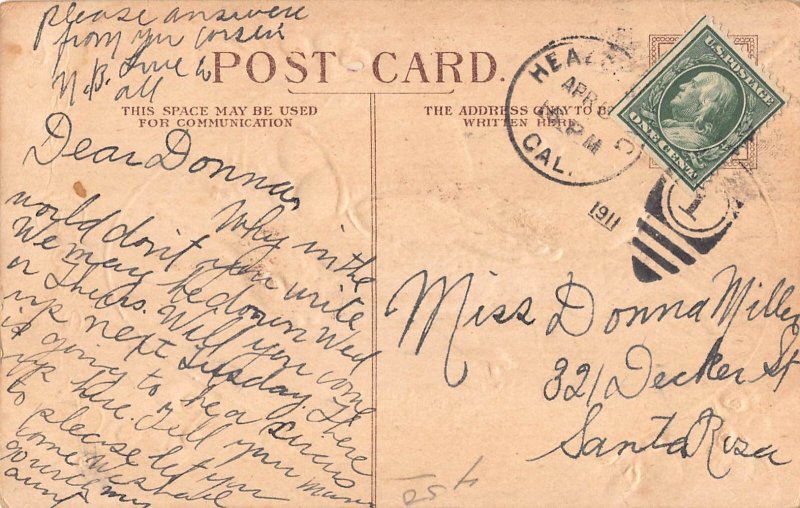 please answere
from yur
N.B. Love to
all
POST CARD.
THIS SPACE MAY BE USED
FOR COMMUNICATION
THE ADDRESS ONLY TO BE
WRITTEN HERE
HEA
APR
M
CAL.
1911
1
U.S. POSTAGE
ONE CENT
Dear Donna
Why in the
would don't you write
We may be down Wed
or Thurs. Will you come
up next Tuesday. There
is going to be a circus
up here. Tell you mama
to please let you
come
Miss Donna Miller
321 Decker St
Santa Rosa